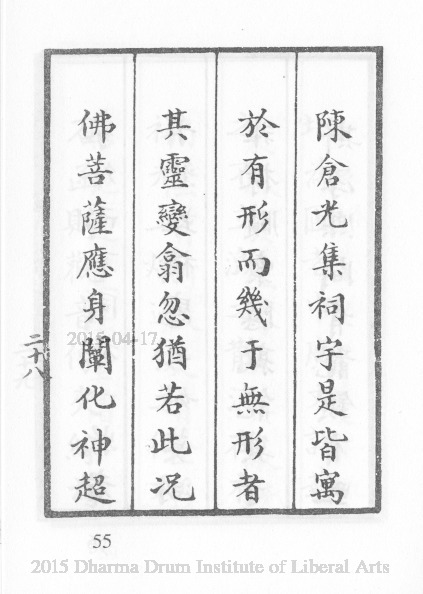 陳倉光集祠宇是皆寓
於有形而幾于無形者
其靈變翕忽猶若此况
佛菩薩應身闡化神超
二十八
2015-04-17
55
2015 Dharma Drum Institute of Liberal Arts